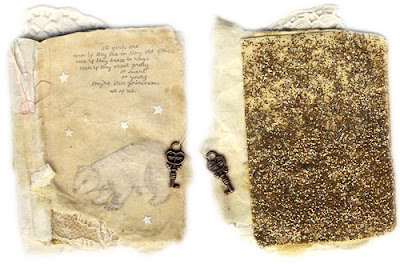 all girls are
even if they live in tiny old attics
even if they dress in rags
even if they arent pretty
or smart
or young
they're still princesses
all of us.